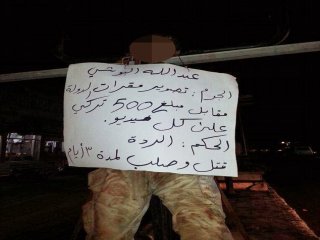 عبد الله البوشي
الجرم : تصوير مقرات لدولة
مقابل مبلغ 500 تركي
على كل فيديو.
الحكم : الردة
قتل وصلب لمدة ٣ أيام